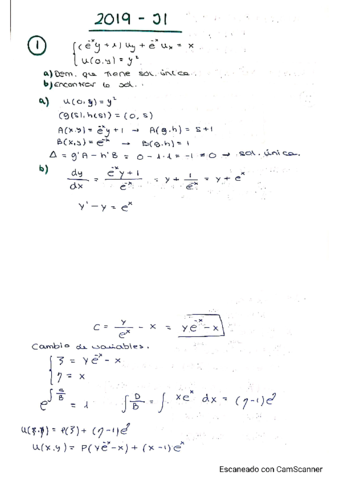 2019-J1
① { (e⁻ˣy + 1) uy + e⁻ˣ ux = x
u(0,y) = y²
a) Dem. que tiene sol. única.
b) Encontrar la sol..
a) u(0,y) = y²
(g(s), h(s)) = (0, s)
A(x,y) = e⁻ˣy + 1 → A(g,h) = s + 1
B(x,y) = e⁻ˣ → B(g,h) = 1
Δ = g'A - h'B = 0 - 1·1 = -1 ≠ 0 → sol. única.
b) dy/dx = (e⁻ˣy + 1)/e⁻ˣ = y + 1/e⁻ˣ = y + eˣ
y' - y = eˣ
C = y/eˣ - x = ye⁻ˣ - x
Cambio de variables.
{ ξ = ye⁻ˣ - x
η = x
= 1 ∫ D/B = ∫ xeˣ dx = (η-1)e^η
= P(ξ) + (η-1)e^η
u(x,y) = P(ye⁻ˣ - x) + (x-1)eˣ
Escaneado con CamScanner